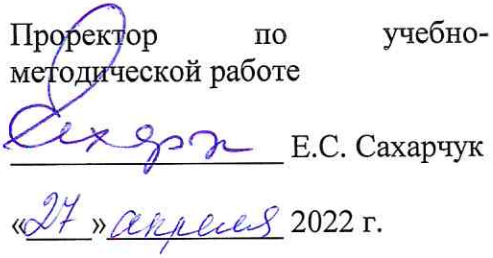 Проректор по учебно-
методической работе
Е.С. Сахарчук
«27» апреля 2022 г.